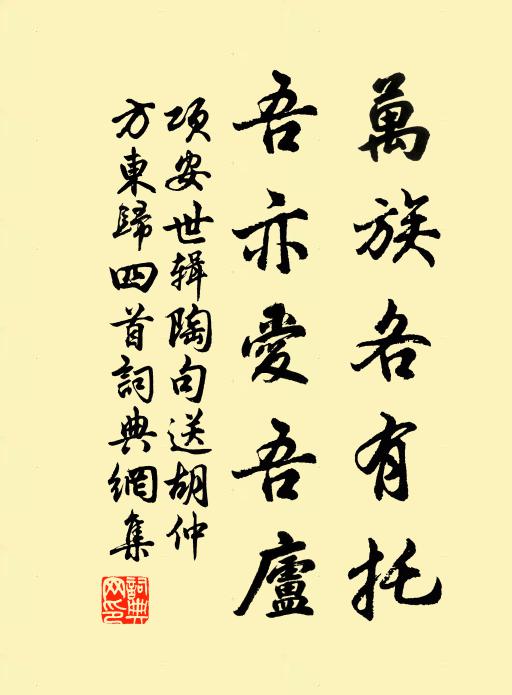 萬族各有托
吾亦愛吾廬
項安世輯陶句送胡仲
方東歸四首詞典網集
詞典
網印